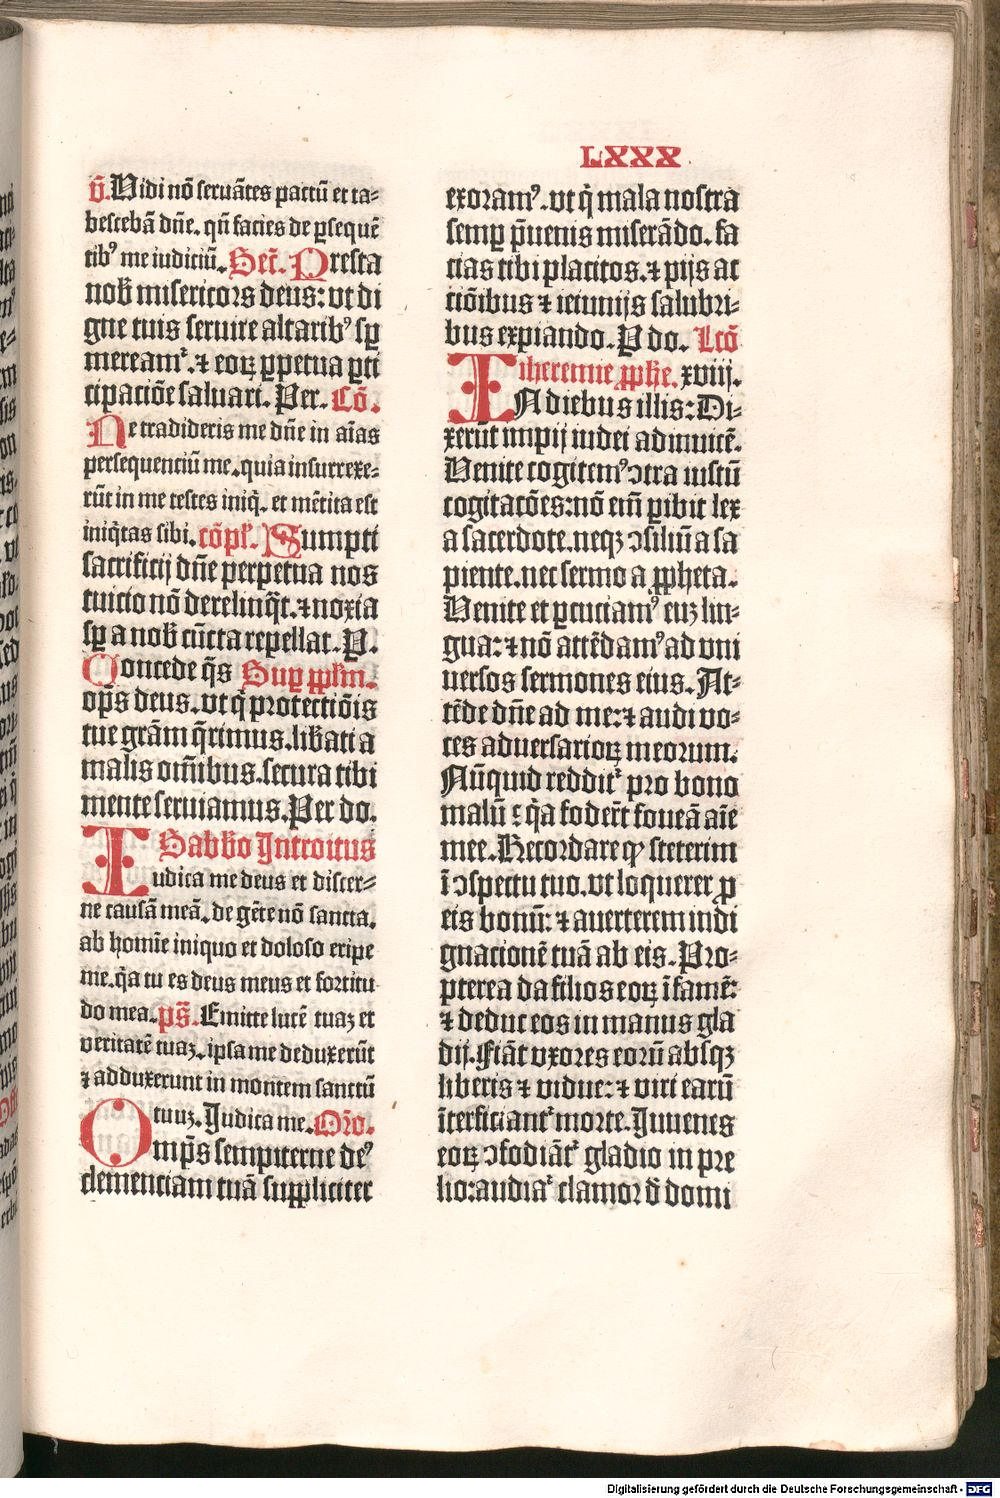 LXXX
v̄. Vidi nō seruātes pactū et ta⸗
bescebā dn̄e. qn̄ facies de ꝑsequē
tibꝰ me iudiciū. Secr̄. Presta
nob̄ misericors deus: vt di
gne tuis seruire altaribꝰ sp̄
mereamᷣ. ⁊ eoꝝ ꝑpetua ꝑti
cipatiōe saluari. Per. Cō.
Ne tradideris me dn̄e in aīas
persequentiū me. quia insurrexe⸗
rūt in me testes iniq̄. et mētita est
iniq̄tas sibi. cōpl̄. Sumpti
sacrificij dn̄e perpetua nos
tuitio nō derelinq̄t. ⁊ noxia
sp̄ a nob̄ cūcta repellat. P.
Concede q̄s Suꝑ pplm̄.
op̄s deus. vt q̄ protectiōis
tue grām q̄rimus. lib̄ati a
malis oīnibus. secura tibi
mente seruiamus. Per do.
Sabb̄o Introitus
Iudica me deus et discer⸗
ne causā meā. de gēte nō sancta.
ab homīe iniquo et doloso eripe
me. q̄a tu es deus meus et fortitu
do mea. ps̄. Emitte lucē tuaꝫ et
veritatē tuaꝫ. ipsa me deduxerūt
⁊ adduxerunt in montem sanctū
tuuꝫ. Iudica me. Or̄o.
Omp̄s sempiterne deꝰ
clementiam tuā suppliciter
exoramꝰ. vt q̄ mala nostra
semꝑ p̄uenis miserādo. fa
cias tibi placitos. ⁊ pijs ac
tiōibus ⁊ ieiunijs salubri⸗
bus expiando. P do. Lcō
iheremie ꝓph̄e. xviij.
IN diebus illis: Di⸗
xerūt impij iudei adinuicē.
Venite cogitemꝰ ↄtra iustū
cogitatōes: nō em̄ ꝑibit lex
a sacerdote. neqꝫ ↄsiliū a sa
piente. nec sermo a ꝓpheta.
Venite et ꝑcuciamꝰ euꝫ lin⸗
gua: ⁊ nō attēdamꝰ ad vni
uersos sermones eius. At⸗
tēde dn̄e ad me: ⁊ audi vo⸗
ces aduersarioꝝ meorum.
Nūquid redditᷣ pro bono
malū: q̄a foder̄t foueā aīe
mee. Recordare ꝙ steterim
ī ↄspectu tuo. vt loquerer ꝓ
eis bonū: ⁊ auerterem indi
gnationē tuā ab eis. Pro⸗
pterea da filios eoꝝ ī famē:
⁊ deduc eos in manus gla
dij. Fiāt vxores eorū absq̄ꝫ
liberis ⁊ vidue: ⁊ viri earū
īterficiantᷣ morte. Iuuenes
eoꝝ ↄfodiātᷣ gladio in pre
lio: audiaᷣ clamor d̄ domi
Digitalisierung gefördert durch die Deutsche Forschungsgemeinschaft - DFG